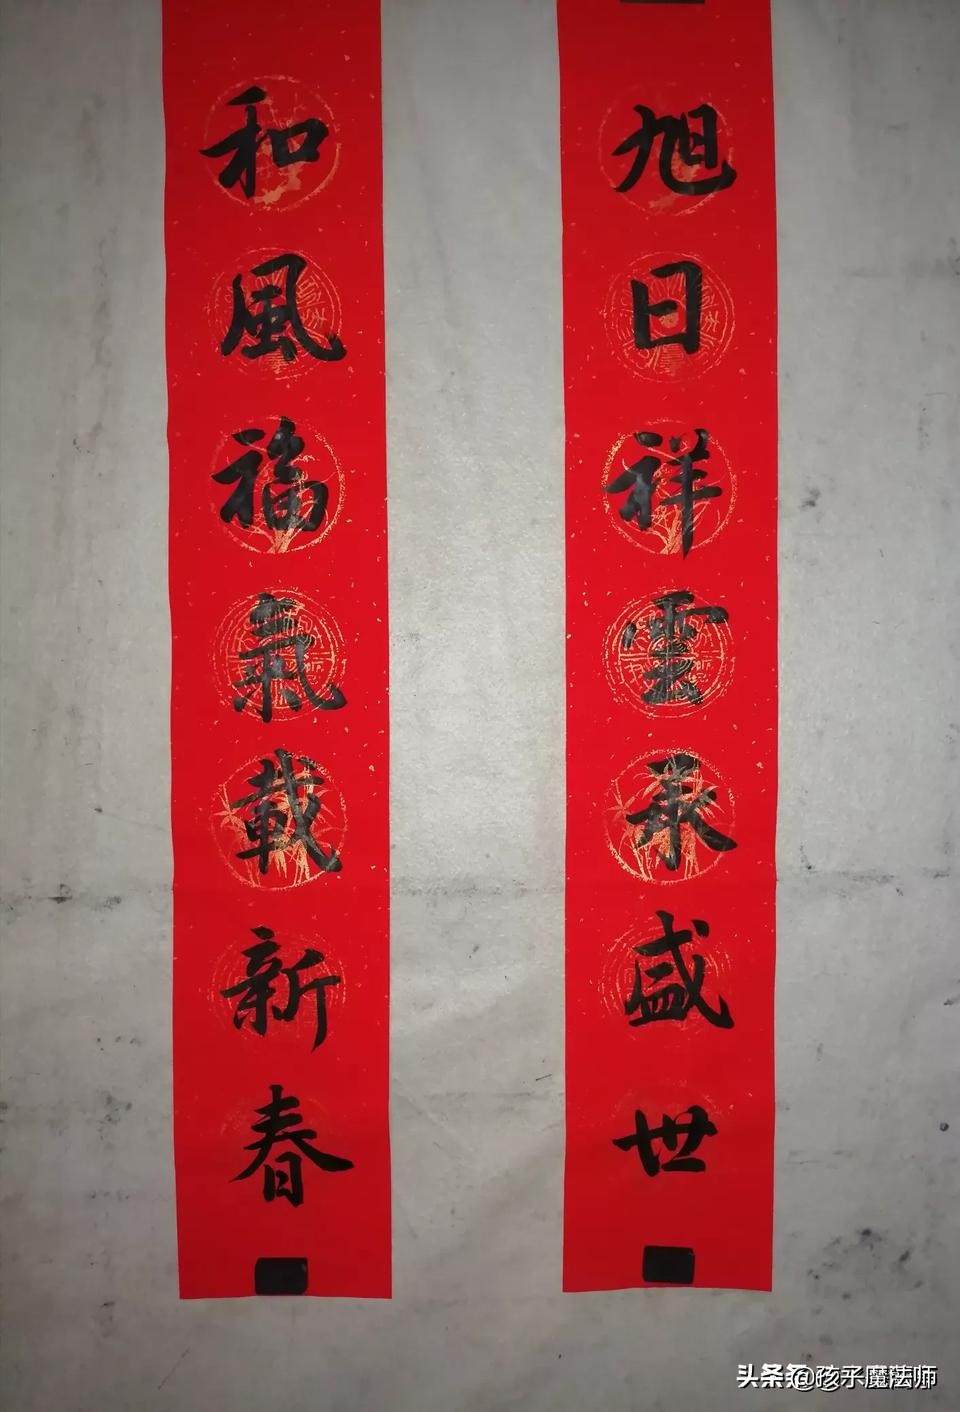 旭日祥雲承盛世
和風福氣載新春
头条 @孩子魔法师